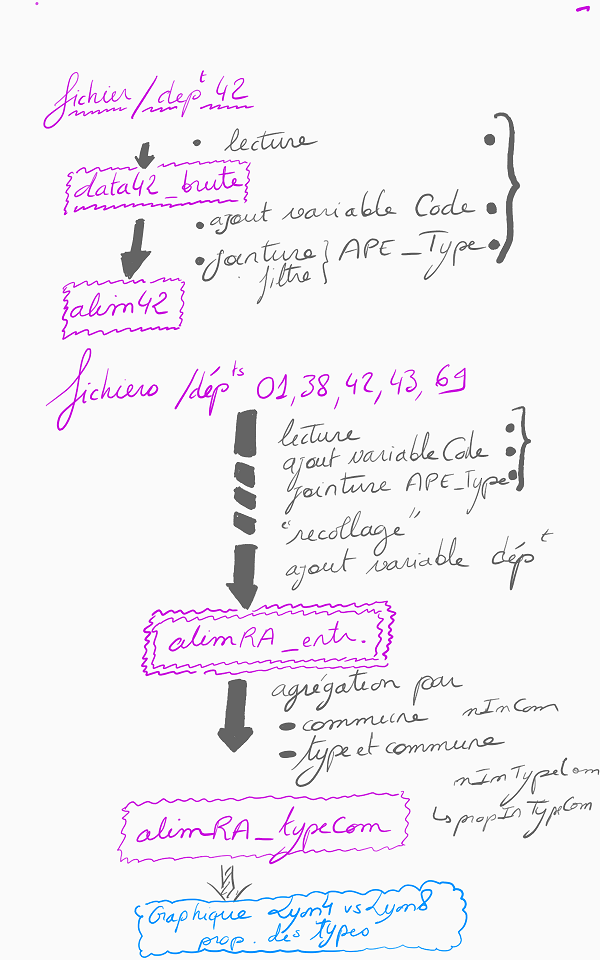 fichier / dépt 42
• lecture
data42_brute
• ajout variable Code
• jointure } APE_Type
filtre
alim42
fichiers /dépts 01, 38, 42, 43, 69
lecture
ajout variable Code
jointure APE_Type
"recollage"
ajout variable dépt
alimRA_entr.
agrégation par
- commune nInCom
- type et commune
nInTypeCom
↳ propInTypeCom
alimRA_typeCom
Graphique Lyon4 vs Lyon8
prop. des types